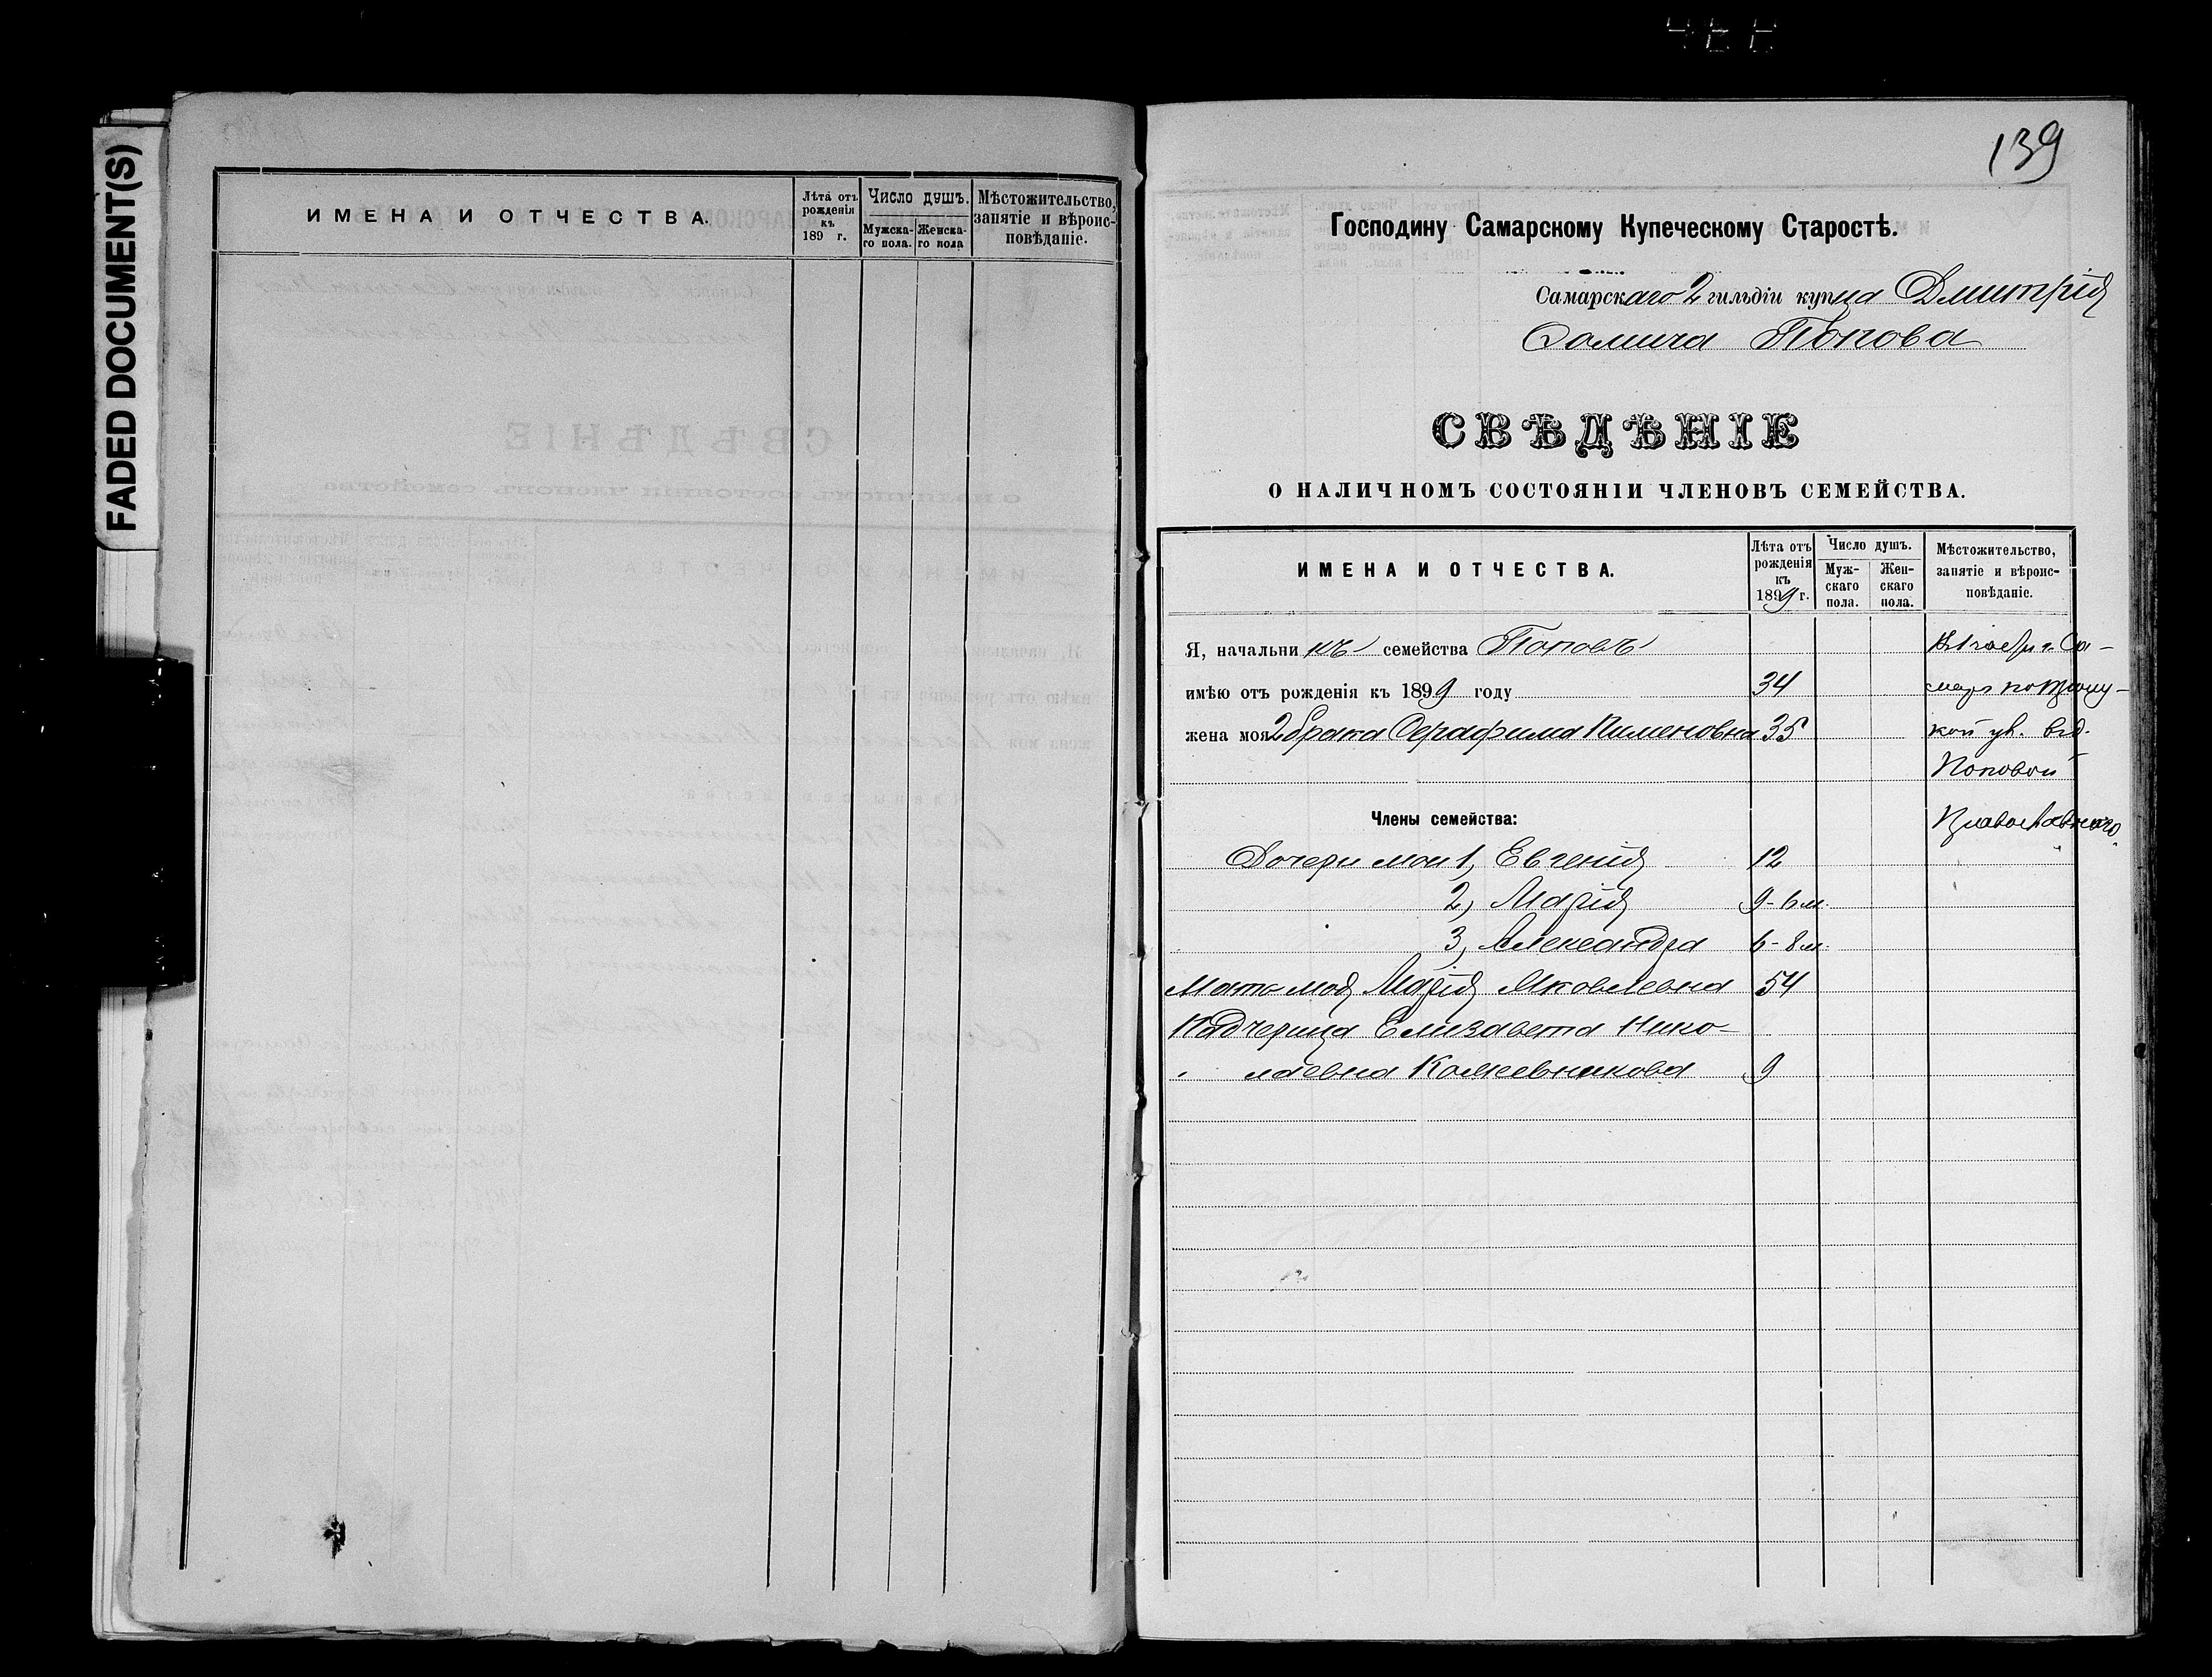 FADED DOCUMENT(S)
ИМЕНА И ОТЧЕСТВА.
Лѣта отъ рожденія къ 189 г.
Число душъ.
Мужска-го пола.
Женска-го пола
Мѣстожительство, занятіе и вѣроис-повѣданіе.
139
Господину Самарскому Купеческому Старостѣ.
Самарскаго 2 гильдіи купца Дмитрія
Фомича Попова
СВѢДѢНІЕ
О НАЛИЧНОМЪ СОСТОЯНІИ ЧЛЕНОВЪ СЕМЕЙСТВА.
ИМЕНА И ОТЧЕСТВА.
Лѣта отъ рожденія къ 1899 г.
Число душъ.
Муж-скаго пола.
Жен-скаго пола.
Мѣстожительство, занятіе и вѣроис-повѣданіе.
Я, начальникъ семейства Поповъ
имѣю отъ рожденія къ 1899 году 34
жена моя 2 брака Серафима Пименовна 35
кой ул. въ д.
Поповой
Члены семейства: Православнаго
Дочери мои 1, Евгенія 12
2, Марія 9-6 м.
3, Александра 6-8 м.
Мать моя Марія Яковлевна 54
Падчерица Елизавета Нико-
лаевна Кожевникова 9